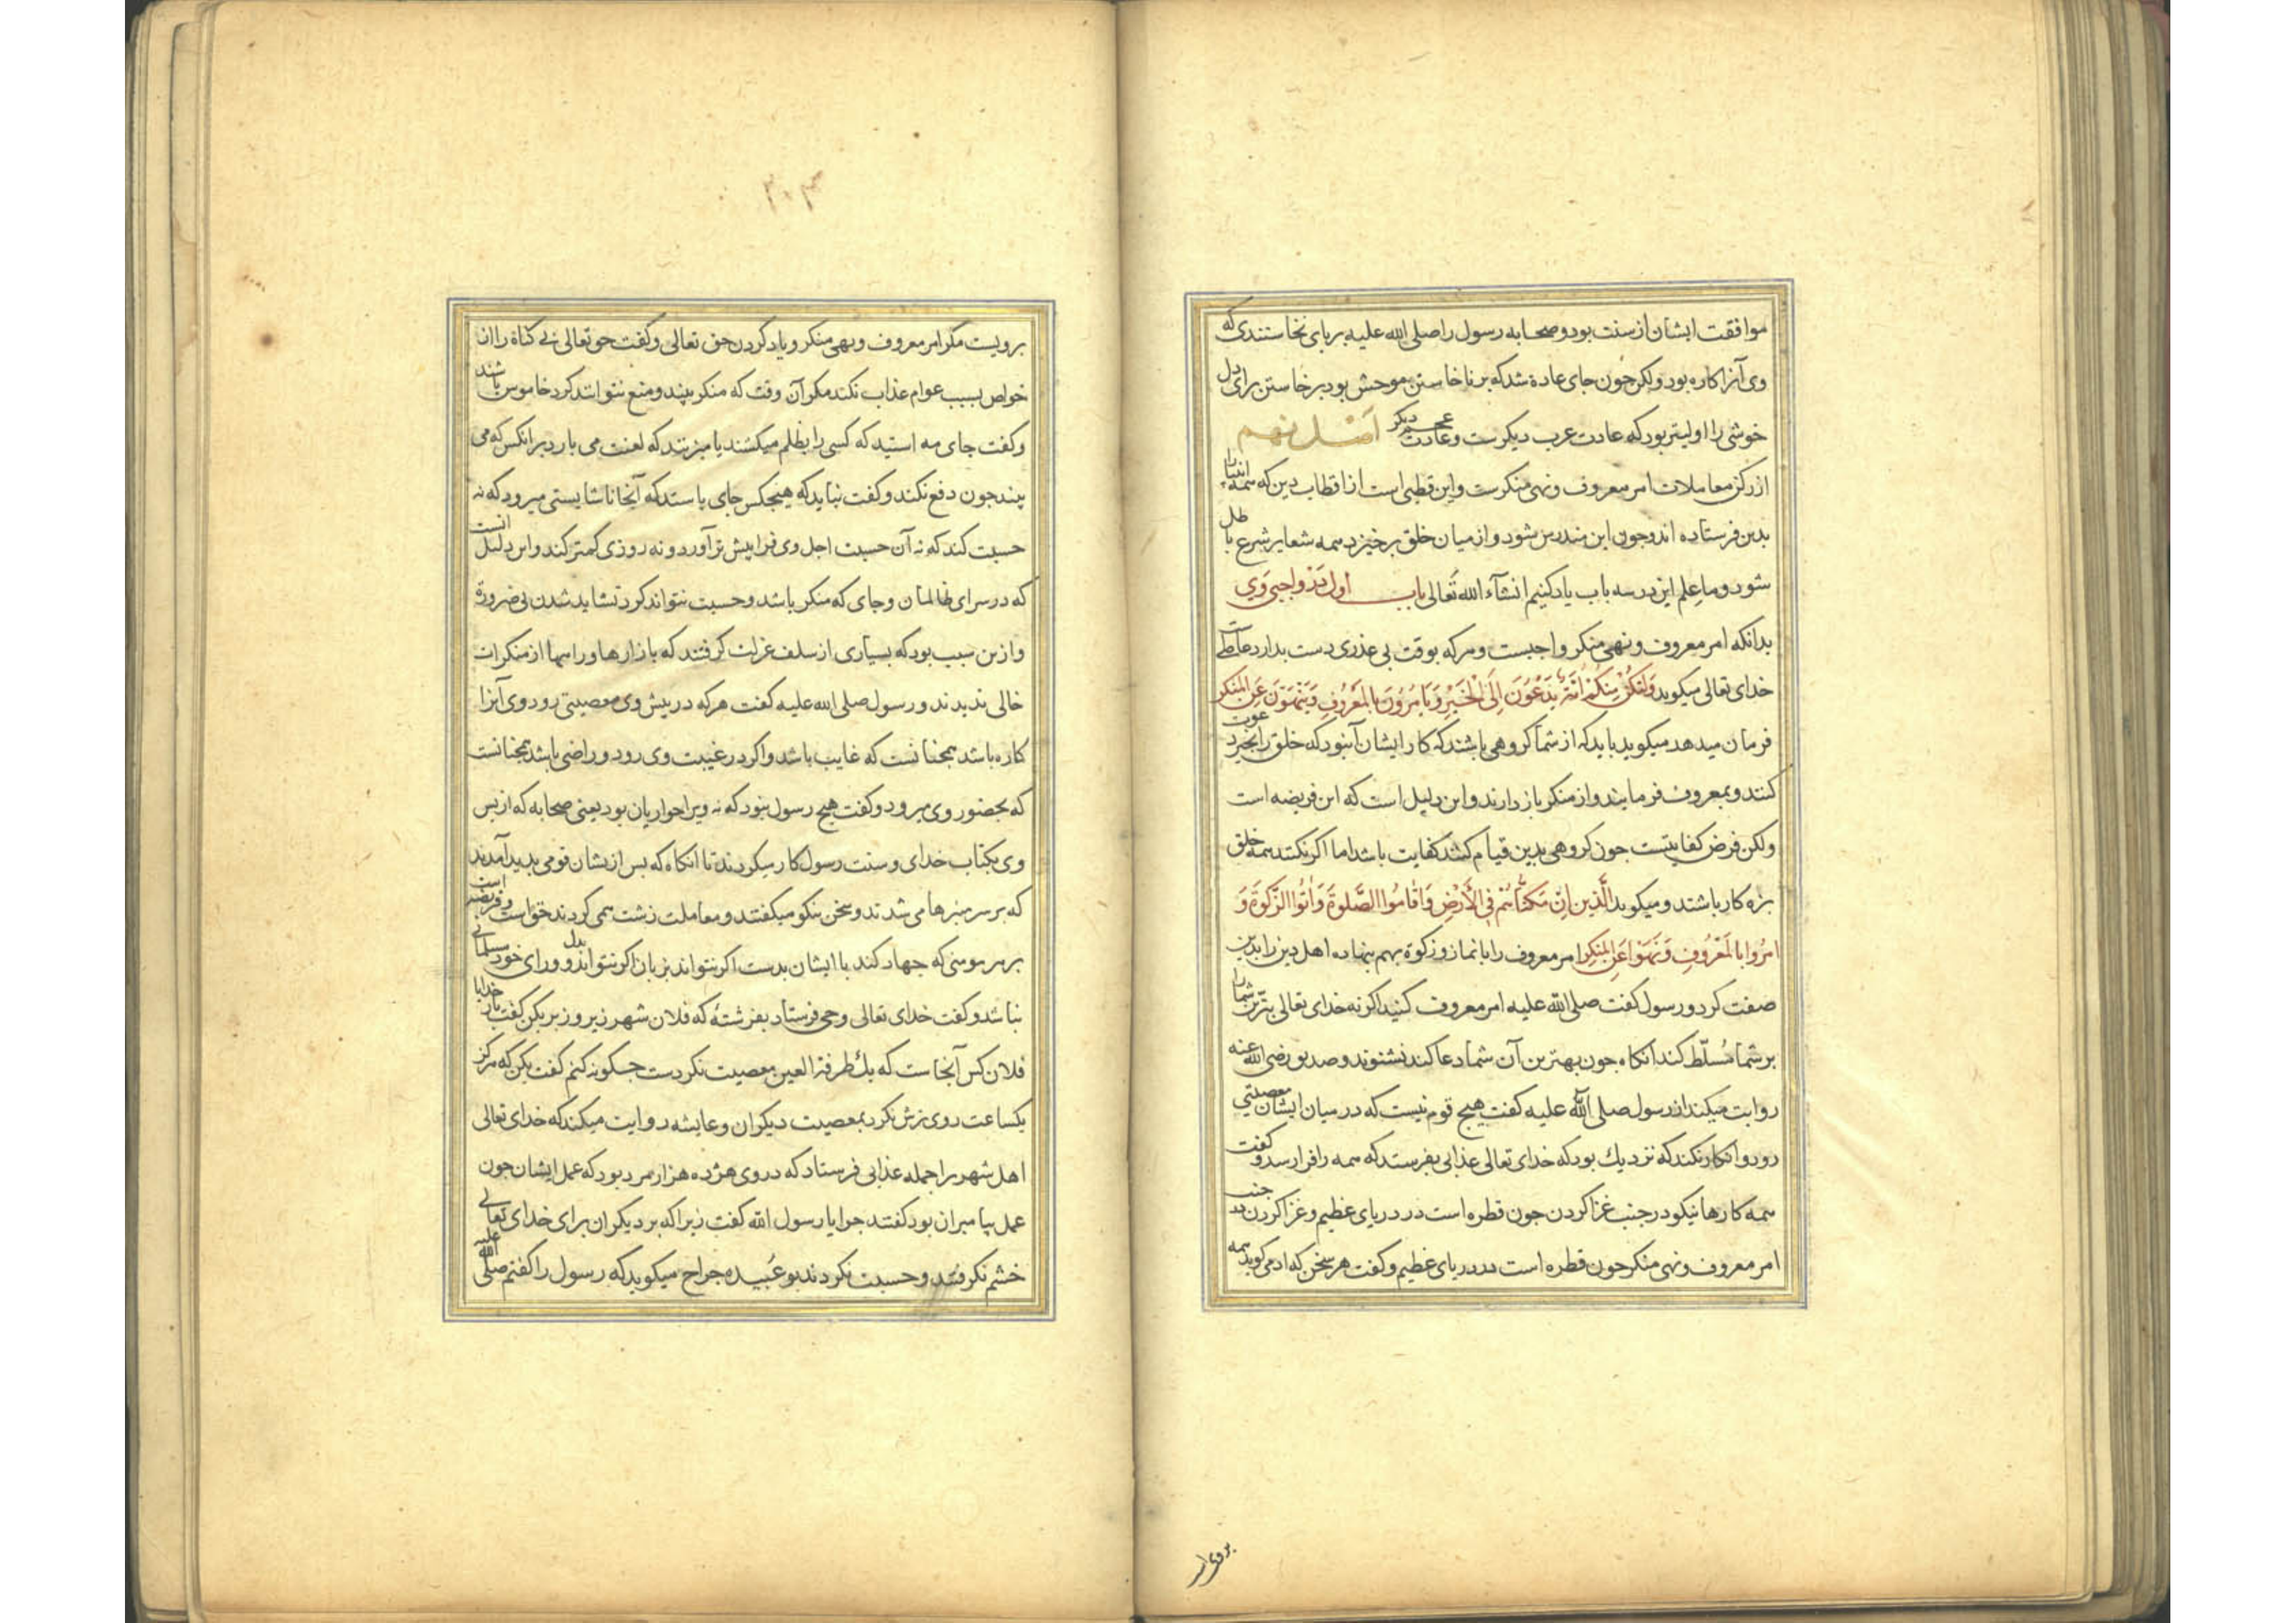 موافقت ایشان از سنت بود و صحابه رسول را صلی الله علیه برپای نخاستندی که
وی آنرا کاره بود ولکن چون جای عادة شد که برناخاستن موحش بود برخاستن برای دل
خوشی را اولیتر بود که عادت عرب دیکرست و عادت عجم دیکر اصل نهم
از رکن معاملات امر معروف و نهی منکرست و این قطبی است از اقطاب دین که همه انبیا را
بدین فرستاده اند و جون این مندرس شود و از میان خلق برخیزد همه شعایر شرع باطل
شود و ما علم این در سه باب یاد کنیم انشآء الله تعالی باب اول در واجبی وی
بدانکه امر معروف و نهی منکر واجبست و هرکه بوقت بی عذری دست بدارد عاصیست
خدای تعالی میکوید وَلْتَكُنْ مِنْكُمْ اُمَّةٌ يَدْعُونَ اِلَى الْخَيْرِ وَيَأمُرُونَ بِالْمَعْرُوفِ وَيَنْهَوْنَ عَنِ الْمُنْكَرِ
فرمان میدهد میکوید باید که از شما کروهی باشند که کار ایشان آن بود که خلق را بخیر دعوت
کنند و بمعروف فرمایند و از منکر باز دارند و این دلیل است که این فریضه است
ولکن فرض کفایتست جون کروهی بدین قیام کنند کفایت باشد اما اکر نکنند همه خلق
بزه کار باشند و میکوید الَّذِينَ اِنْ مَكَّنَّاهُمْ فِي الْأَرْضِ وَاَقَامُوا الصَّلوةَ وَاٰتُوا الزَّكوةَ وَ
امرُوا بِالْمَعْرُوفِ وَنَهَوْا عَنِ الْمُنْكَرِ امر معروف را با نماز و زکوة بهم بنهاده اهل دین را بدین
صفت کرد و رسول کفت صلی الله علیه امر معروف کنید اکر نه خدای تعالی بترین شما را
بر شما مُسلّط کند انکاه جون بهترین آن شما دعا کند نشنوند و صدیق رضی الله عنه
روایت میکند از رسول صلی الله علیه کفت هیج قوم نیست که در میان ایشان معصیتی
رود و انکار نکند که نزدیك بود که خدای تعالی عذابی بفرستد که همه را فرا رسد و کفت
همه کارها نیکو در جنب غزا کردن جون قطره است در دریای عظیم و غزا کردن در جنب
امر معروف و نهی منکر جون قطره است در دریای عظیم و کفت هر سخن که ادمی کوید همه
برویست مکر امر معروف و نهی منکر و یاد کردن حق تعالی و کفت حق تعالی بی کناه را از
خواص بسبب عوام عذاب نکند مکر آن وقت که منکر بینند و منع نتوانند کرد خاموش باشند
و کفت جای مه استید که کسی را بظلم میکشند یا میزنند که لعنت می بارد بر انکس که می
بیند جون دفع نکند و کفت نباید که هیجکس جای باستد که آنجا ناشایستی میرود که نه
حسبت کند که نه آن حسبت اجل وی فرا پیش تر آورد و نه روزی کمتر کند و این دلیل انست
که در سرای ظالمان و جای که منکر باشد و حسبت نتواند کرد نشاید شدن بی ضرورة
و ازین سبب بود که بسیاری از سلف عزلت کرفتند که بازارها و راهها از منکرات
خالی ندیدند و رسول صلی الله علیه کفت هرکه در پیش وی معصیتی رود و وی آنرا
کاره باشد همجنانست که غایب باشد و اکر در غیبت وی رود و راضی باشد همجنانست
که بحضور وی میرود و کفت هیج رسول نبود که نه ویرا حواریان بود یعنی صحابه که از پس
وی بکتاب خدای و سنت رسول کار میکردند تا انکاه که پس از یشان قومی بدید آمدند
که بر سر منبرها می شدند و سخن نیکو میکفتند و معاملت زشت همی کردند حق است و فریضه
بر هر مومنی که جهاد کند با ایشان بدست اکر نتواند بزبان اکر نتواند بدل و ورای خود مسلمانی
نباشد و کفت خدای تعالی وحی فرستاد بفرشتهٔ که فلان شهر زیر و زبر بکن کفت بار خدایا
فلان کس آنجاست که یك طرفة العین معصیت نکردست جکونه کنم کفت بکن که هرکز
یکساعت روی ترش نکرد بمعصیت دیکران و عایشه روایت میکند که خدای تعالی
اهل شهر را جمله عذابی فرستاد که در وی هژده هزار مرد بود که عمل ایشان جون
عمل پیامبران بود کفتند جرا یا رسول الله کفت زیرا که بر دیکران برای خدای تعالی
خشم نکرفتند و حسبت نکردند بو عُبیده جراح میکوید که رسول را کفتم صلی الله علیه